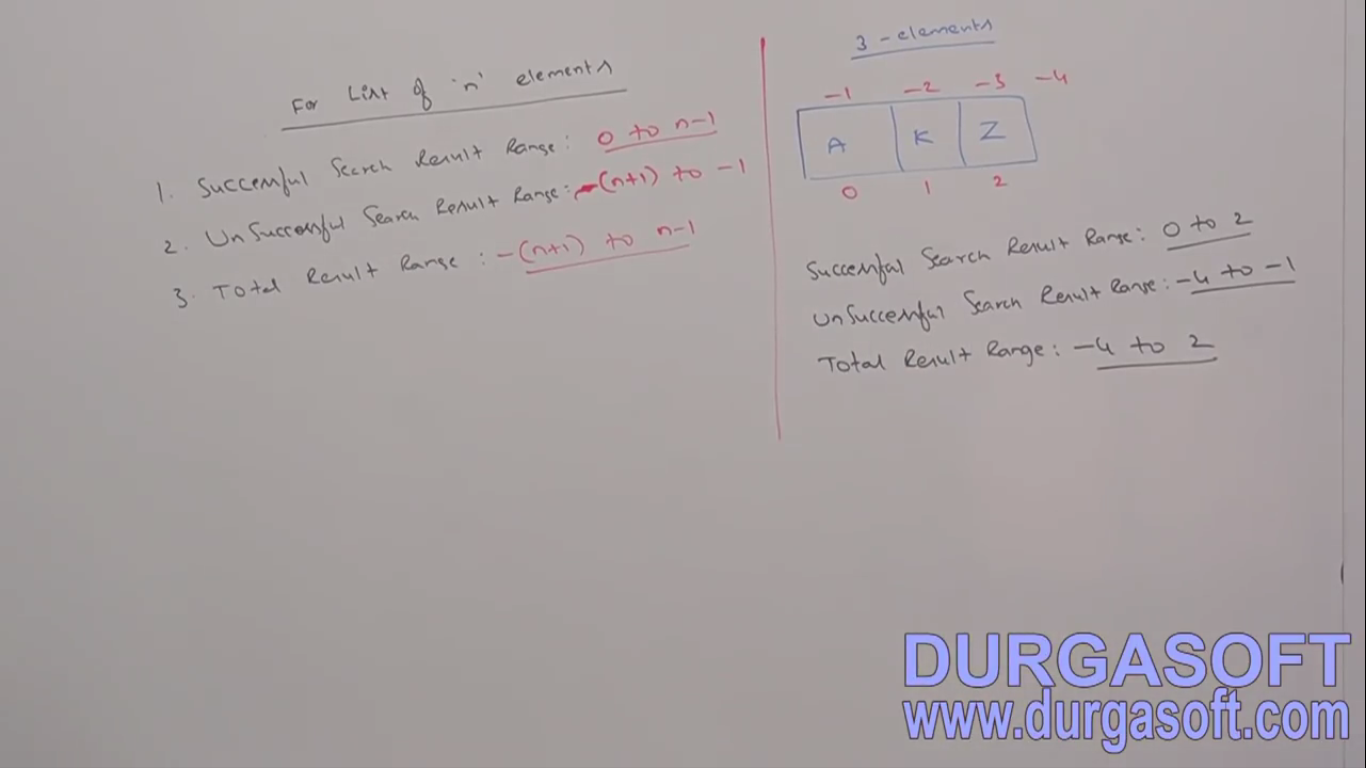 For List of 'n' elements
1. Successful Search Result Range: 0 to n-1
2. UnSuccessful Search Result Range: -(n+1) to -1
3. Total Result Range : -(n+1) to n-1
3 - elements
-1 -2 -3 -4
A K Z
0 1 2
Successful Search Result Range: 0 to 2
UnSuccessful Search Result Range: -4 to -1
Total Result Range: -4 to 2
DURGASOFT
www.durgasoft.com